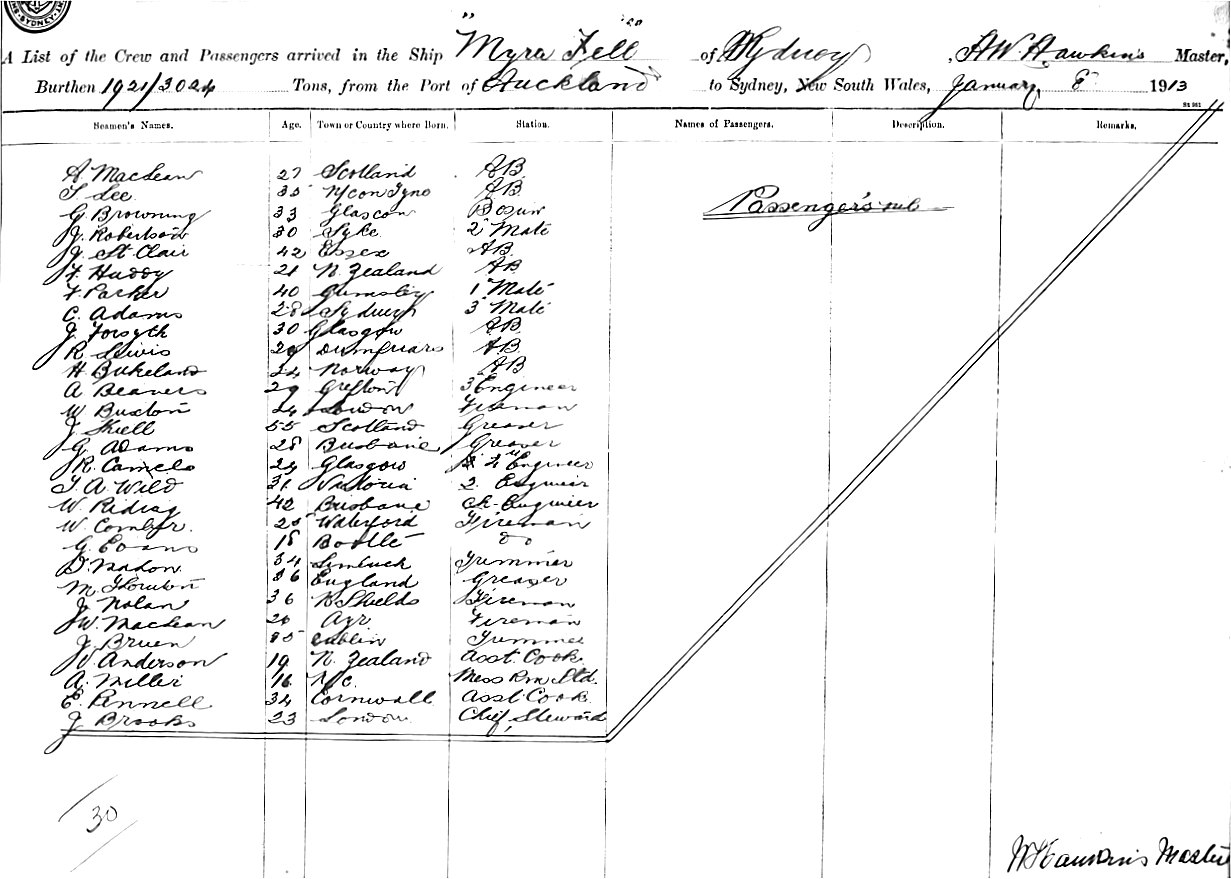 SYDNEY
A List of the Crew and Passengers arrived in the Ship "Myra Fell" of Sydney, Hawkins Master,
Burthen 1921/3024 Tons, from the Port of Auckland to Sydney, New South Wales, January 8 1913
Seamen's Names. Age. Town or Country where Born. Station. Names of Passengers. Description. Remarks.
A MacLean 27 Scotland AB
T Lee 35 AB
G Browning 33 Glascow Bosun
Passengers nil
J. Robertson 30 Syke 2 Mate
J. St Clair 42 Essex AB
F. Huddy 21 N. Zealand AB
F. Parker 40 1 Mate
C. Adams 28 Sydney 3 Mate
J. Forsyth 30 Glasgow AB
R Lewis 29 Dumfriars AB
H Bukeland 24 Norway AB
A Beavers 29 Grafton 3 Engineer
W Buxton 24 London Fireman
J. Skell 55 Scotland Greaser
G. Adams 28 Brisbane Greaser
R. Camels 24 Glasgow 4 Engineer
T. A. Wild 31 Victoria 2 Engineer
W. Riding 42 Brisbane Ch. Engineer
W. Comber 25 Waterford Fireman
G. Evans 18 Bootle do
D. Nadon 34 Trimmer
M Thornton 36 England Greaser
J. Nolan 36 N Shields Fireman
W. Maclean 20 Ayr Fireman
J. Bruen 35 Dublin Trimmer
W Anderson 19 N. Zealand Asst. Cook
A. Miller 16 Mess Rm Std.
E. Pennell 34 Cornwall Asst Cook
J Brooks 23 London Chief Steward
30
Hawkins Master